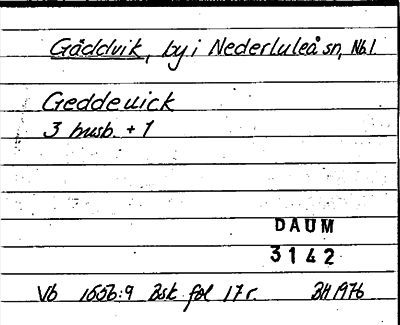 Gäddvik, by i Nederluleå sn, Nb.l
Geddeuick
3 husb. + 1
DAUM
3142
Vb 1556:9 Bsk fol 17 r. BH 1976